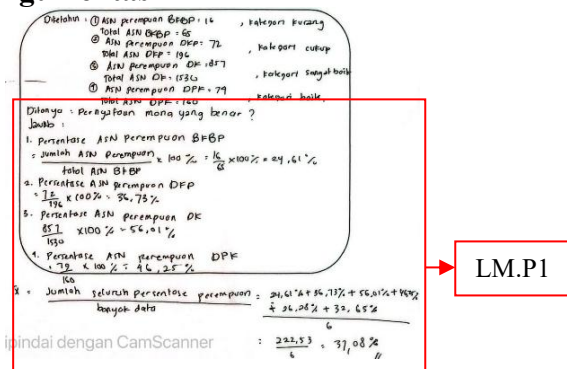 Diketahui : ① ASN perempuan BFBP : 16 , kategori kurang
Total ASN BFBP = 65
② ASN perempuan DKP = 72 , kategori cukup
Total ASN DKP = 196
③ ASN perempuan DK : 857 , kategori sangat baik
Total ASN DK : 1530
④ ASN perempuan DPK = 79 , kategori baik
Total ASN DPK = 160
Ditanya : Pernyataan mana yang benar ?
Jawab :
1. Persentase ASN perempuan BFBP
= Jumlah ASN perempuan / total ASN BFBP x 100 % = 16/65 x 100 % = 24,61 %
2. Persentase ASN perempuan DKP
= 72/196 x 100 % = 36,73 %
3. Persentase ASN perempuan DK
857/1530 x 100 % = 56,01 %
4. Persentase ASN perempuan DPK
= 79/160 x 100 % = 46,25 %
= Jumlah seluruh persentase perempuan / banyak data = 24,61 % + 36,73 % + 56,01 % + 46,25 % + 26,28 % + 32,65 % / 6
= 222,53 / 6 = 37,08 %
ipindai dengan CamScanner
LM.P1